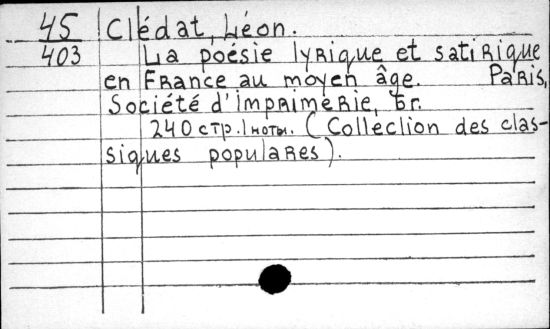 45 Clédat, Léon.
403 La poésie lyrique et satirique
en France au moyen âge. Paris,
Société d'imprimerie, бг.
240 стр. Iноты. (Colleclion des clas-
siques populares).